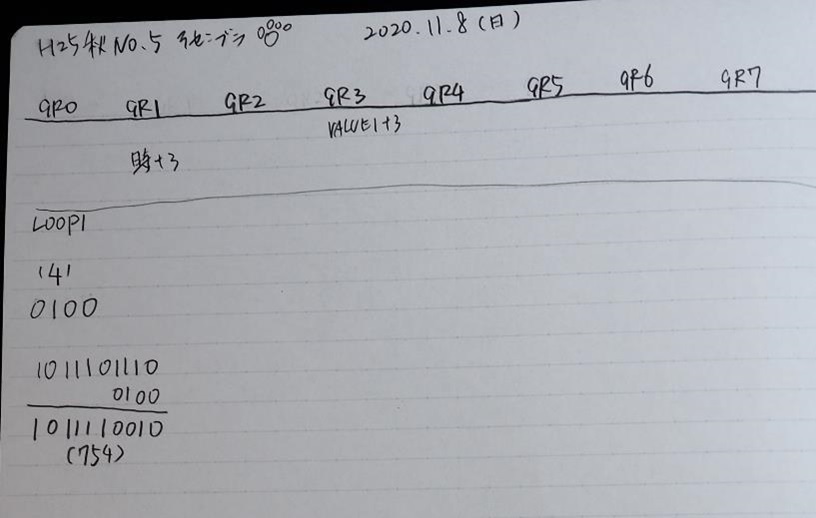 H25秋 No.5 アセンブラ
2020.11.8(日)
GR0 GR1 GR2 GR3 GR4 GR5 GR6 GR7
VALUE1+3
+3
LOOP1
'4'
0100
1011101110
0100
1011110010
(754)